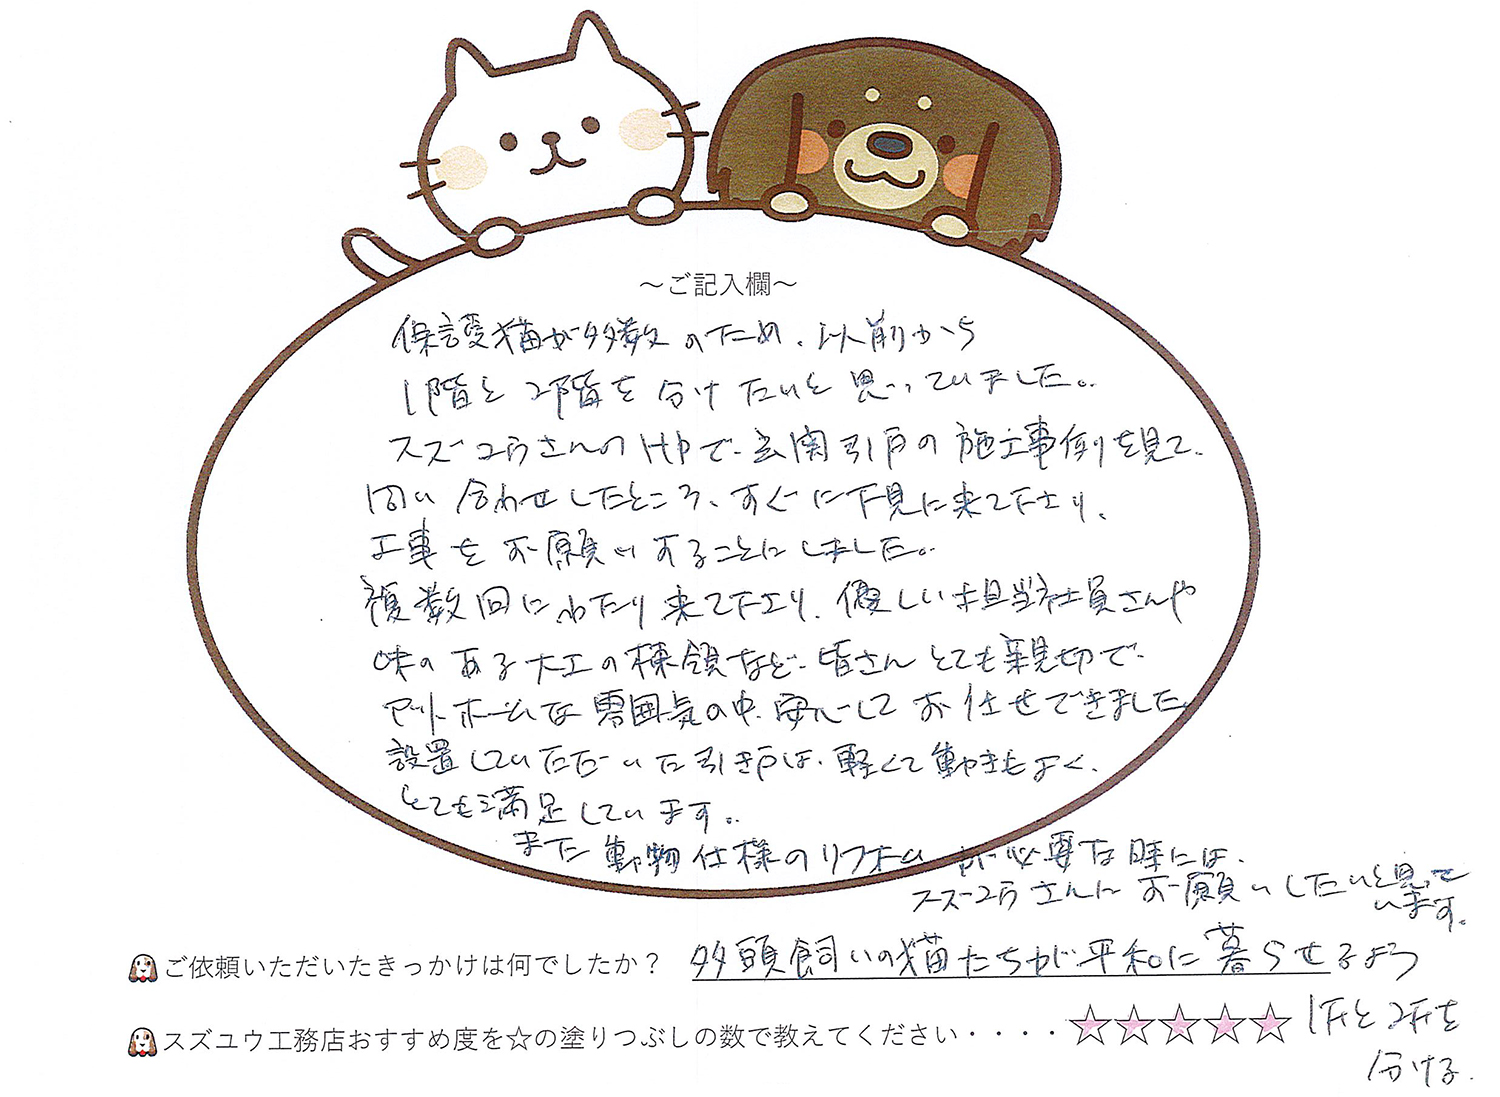 ～ご記入欄～
保護猫が多数のため、以前から
1階と2階を分けたいと思っていました。
スズユウさんのHPで、玄関引戸の施工事例を見て、
問い合わせしたところ、すぐに下見に来て下さり、
工事をお願いすることにしました。
複数回にわたり来て下さり、優しい担当社員さんや
味のある大工の棟領など、皆さんとても親切で、
アットホームな雰囲気の中、安心してお任せできました。
設置していただいた引き戸は、軽くて動きもよく、
とても満足しています。
また動物仕様のリフォームが必要な時には、
スズユウさんにお願いしたいと思って
います。
ご依頼いただいたきっかけは何でしたか？ 多頭飼いの猫たちが平和に暮らせるよう
スズユウ工務店おすすめ度を☆の塗りつぶしの数で教えてください・・・・☆☆☆☆☆ 1Fと2Fを
分ける。